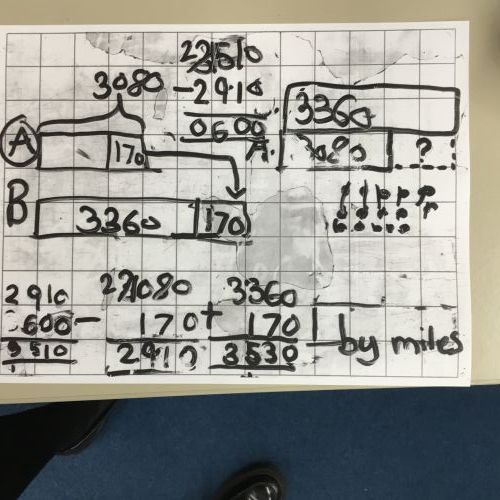 3080
3510
- 2910
0600
A.
3360
3080 ?
A 170
B 3360 170
2910
600 -
3510
1
3080
170
2910
3360
+ 170
3530
by miles